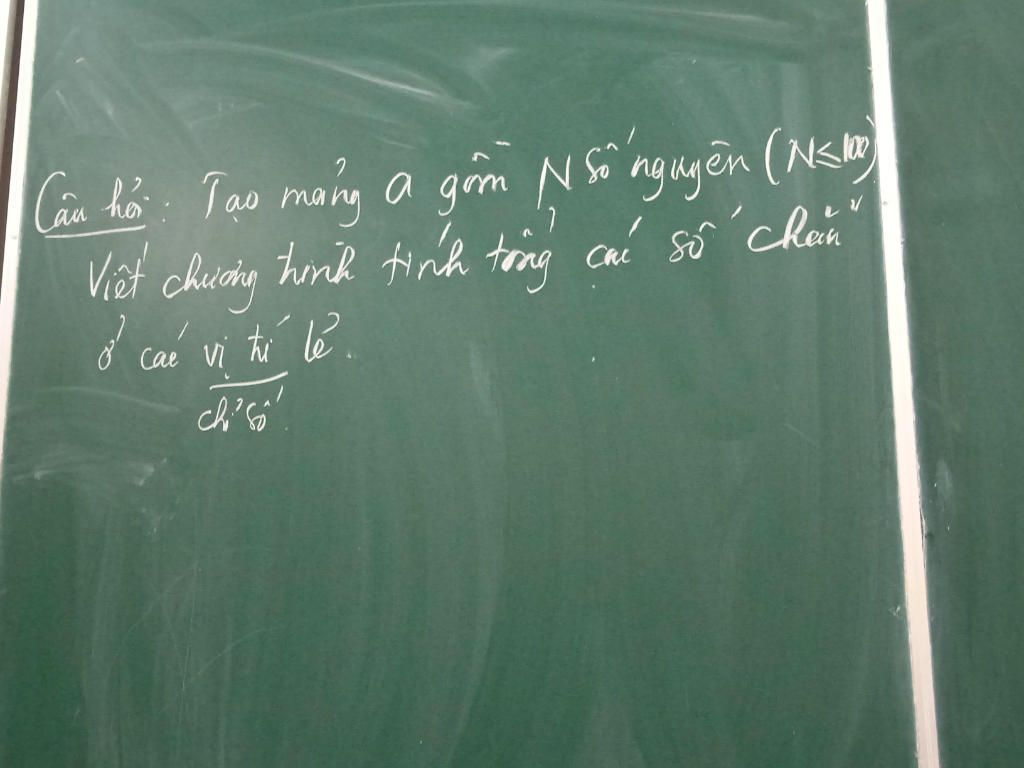 Câu hỏi: Tạo mảng a gồm N số nguyên (N ≤ 100)
Viết chương trình tính tổng các số chẵn
ở các vị trí lẻ.
chỉ số.